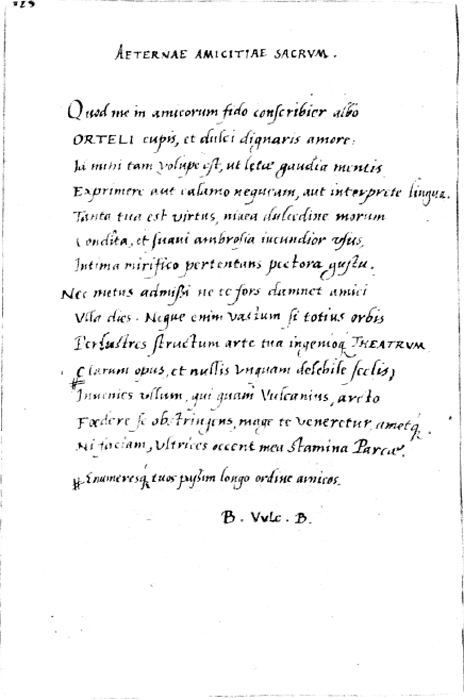 AETERNAE AMICITIAE SACRVM.
Quod me in amicorum fido conscribier albo
ORTELI cupis, et dulci dignaris amore:
Id mihi tam volupe est, ut lętae gaudia mentis
Exprimere aut calamo nequeam, aut interprete lingua.
Tanta tua est virtus, niuea dulcedine morum
Condita, et suaui ambrosia iucundior vsus,
Intima mirifico pertentans pectora gustu.
Nec metus admissi ne te fors damnet amici
Vlla dies. Neque enim vastum si totius orbis
Perlustres structum arte tua ingenioq THEATRVM
Clarum opus, et nullis vnquam delebile seclis,
Inuenies vllum, qui quam Vulcanius, arcto
Foedere se obstringens, mage te veneretur, ametq.
Ni faciam, Vltrices occent mea stamina Parcae.
# Enumeresq tuos passim longo ordine amicos.
B. Vulc. B.